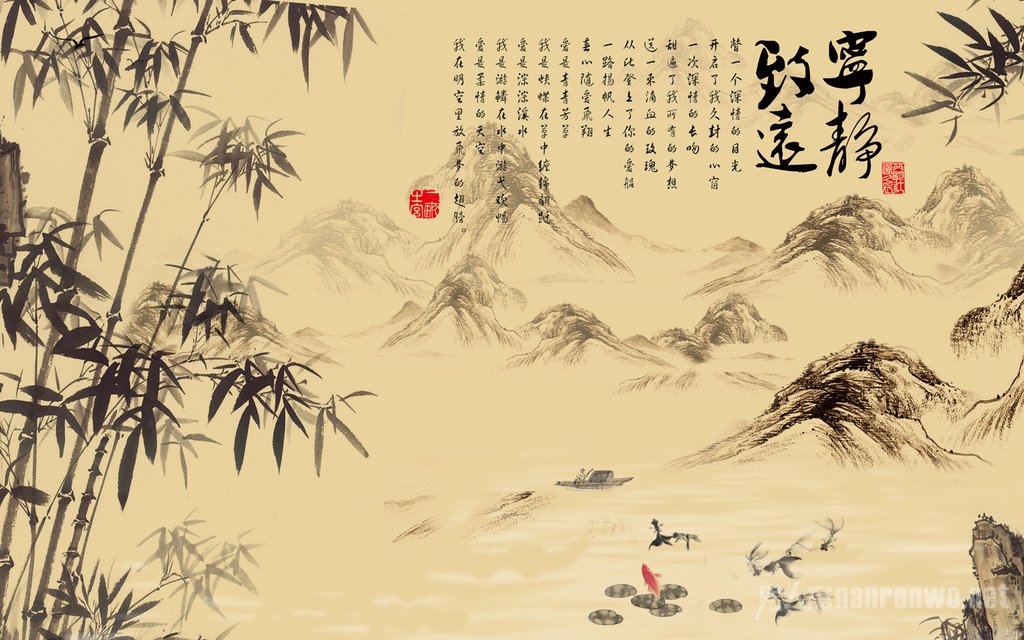 寧靜
致遠
瞥一个深情的目光
开启了我久封的心窗
一次深情的长吻
甜透了我所有的梦想
送一束滴血的玫瑰
从此登上了你的爱船
一路扬帆人生
真心随爱飞翔
爱是青青芳草
我是蛱蝶在草中缠绵翩跹
爱是淙淙溪水
我是游鳞在水中游弋欢畅
爱是柔情的天空
我在明空里放飞梦的翅膀。
nanrenwo.net